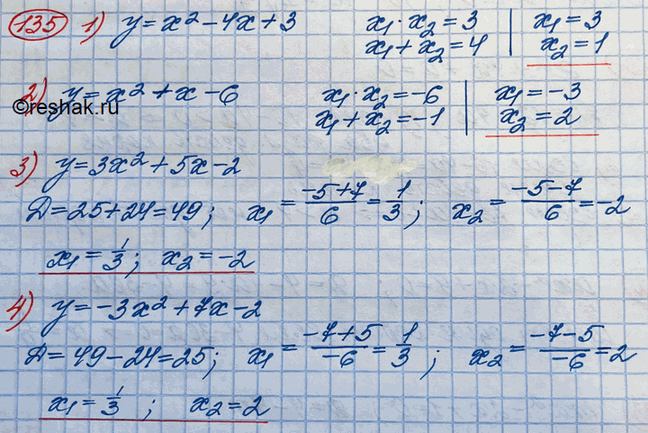 135 1) y = x² - 4x + 3 x₁·x₂ = 3 | x₁ = 3
x₁ + x₂ = 4 | x₂ = 1
2) y = x² + x - 6 x₁·x₂ = -6 | x₁ = -3
©reshak.ru x₁ + x₂ = -1 | x₂ = 2
3) y = 3x² + 5x - 2
Д = 25 + 24 = 49; x₁ = (-5+7)/6 = 1/3; x₂ = (-5-7)/6 = -2
x₁ = 1/3; x₂ = -2
4) y = -3x² + 7x - 2
Д = 49 - 24 = 25; x₁ = (-7+5)/-6 = 1/3; x₂ = (-7-5)/-6 = 2
x₁ = 1/3; x₂ = 2